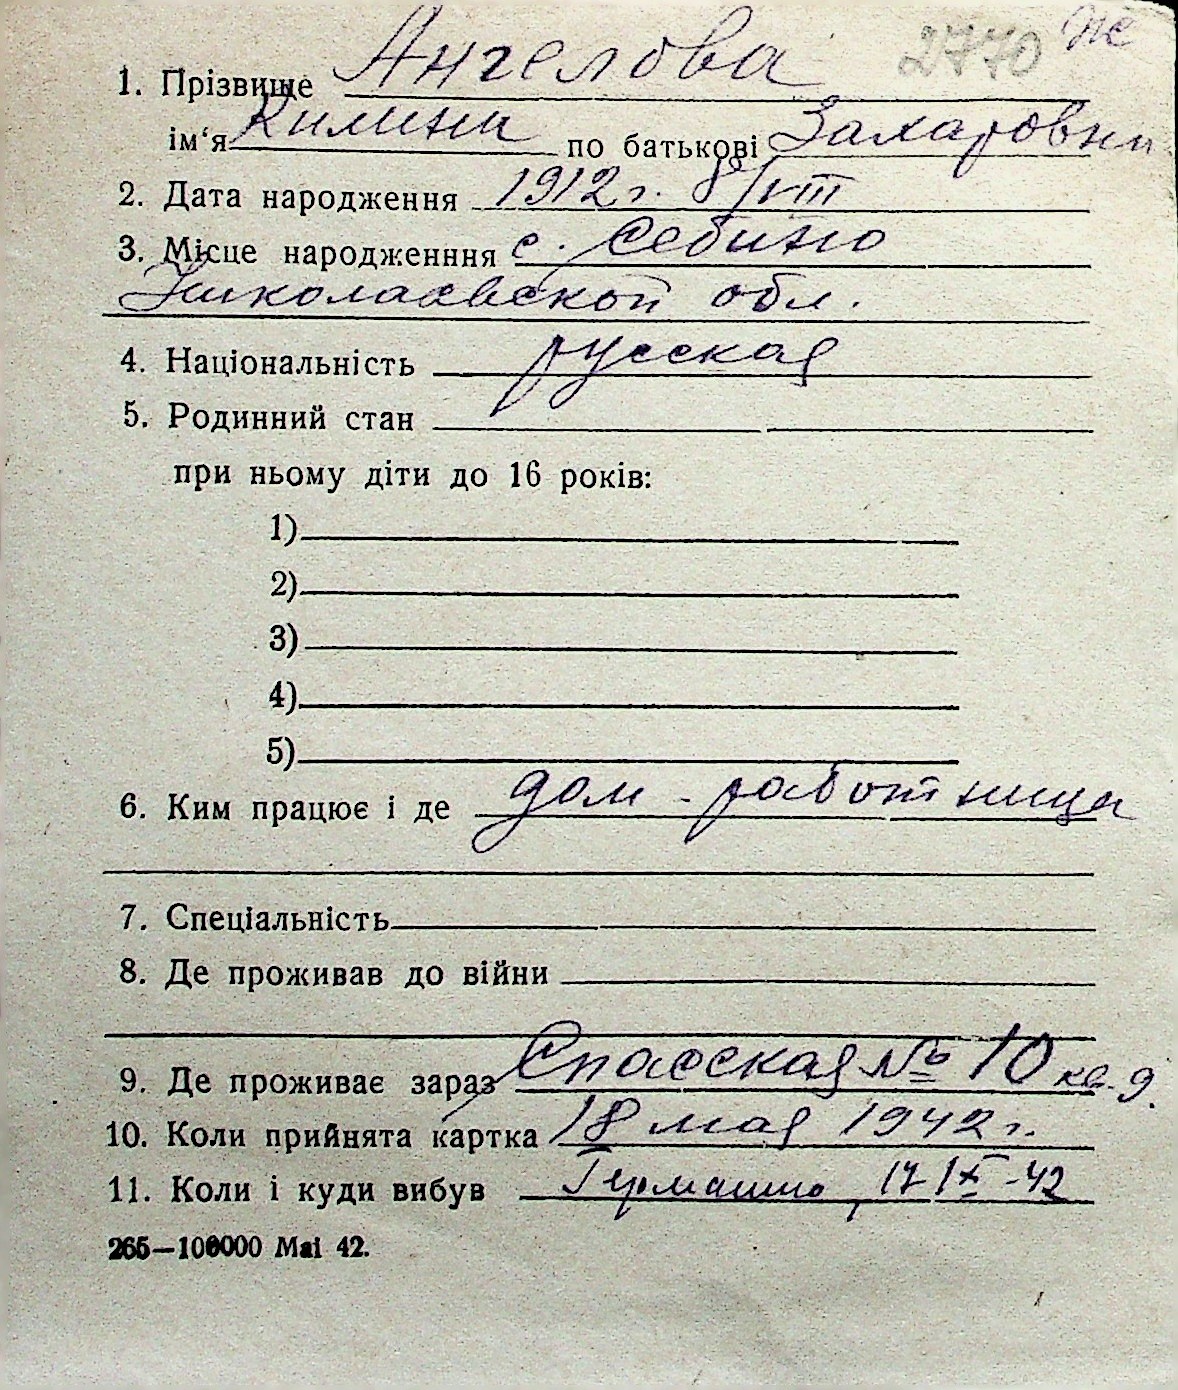 2770
1. Прізвище Ангелова
ім'я Килина по батькові Захаровна
2. Дата народження 1912 г. 8/VIII
3. Місце народженння с. Себино
Николаевской обл.
4. Національність русская
5. Родинний стан
при ньому діти до 16 років:
1)
2)
3)
4)
5)
6. Ким працює і де дом-работница
7. Спеціальність
8. Де проживав до війни
9. Де проживає зараз Спасская № 10 кв. 9.
10. Коли прийнята картка 18 мая 1942 г.
11. Коли і куди вибув Германию, 17 IX-42
265—100000 Mai 42.